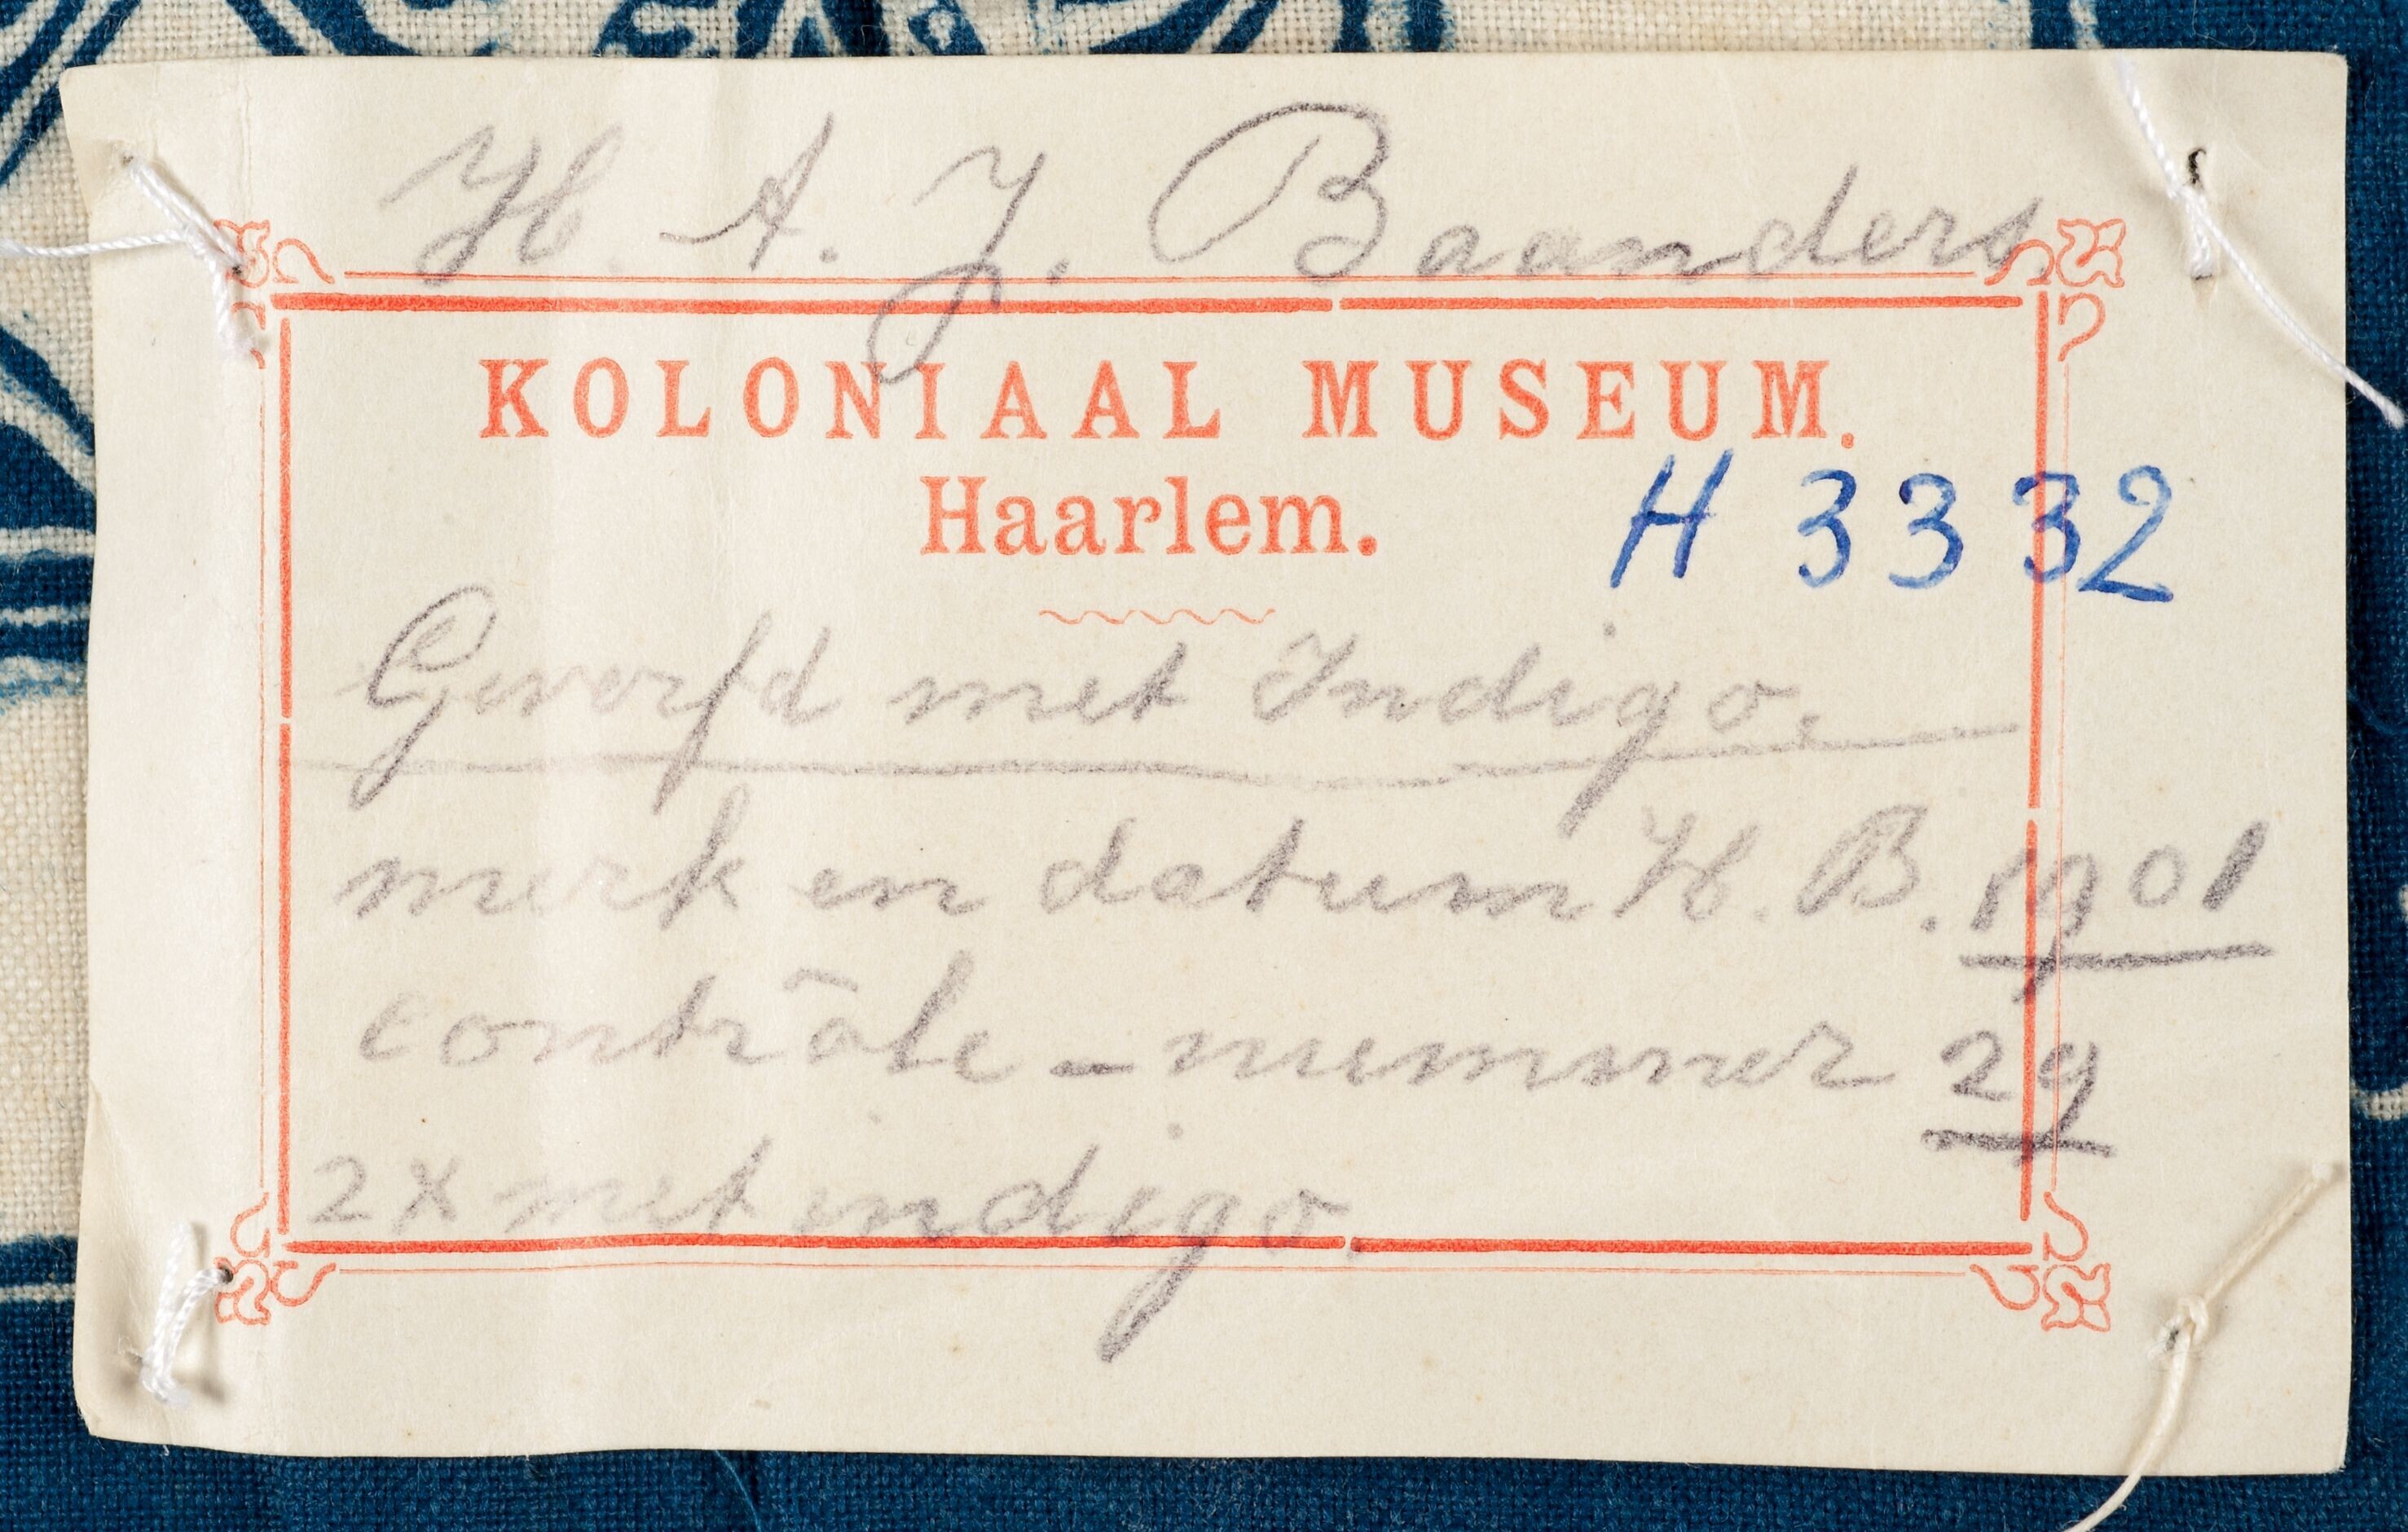 H. A. J. Baanders
KOLONIAAL MUSEUM.
Haarlem.
H 3332
Geverfd met Indigo.
merk en datum H. B. 1901
contrôle - nummer 29
2 x met indigo